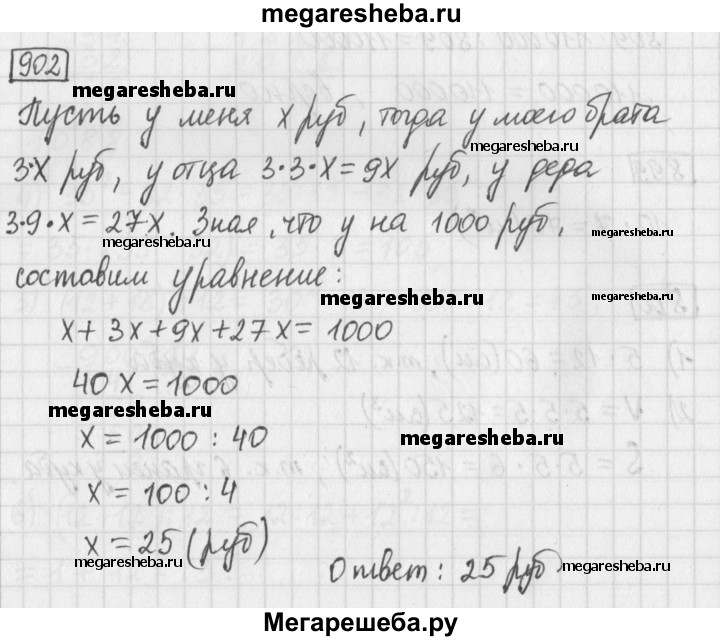 megaresheba.ru
902
megaresheba.ru
Пусть у меня x руб, тогда у моего брата
megaresheba.ru
3·x руб, у отца 3·3·x=9x руб, у деда
megaresheba.ru
3·9·x=27x. Зная, что у на 1000 руб,
megaresheba.ru
megaresheba.ru
составим уравнение:
megaresheba.ru
x+3x+9x+27x=1000
40x=1000
megaresheba.ru
x=1000:40
megaresheba.ru
x=100:4
x=25(руб)
megaresheba.ru
Ответ: 25 руб
megaresheba.ru
Мегарешеба.ру